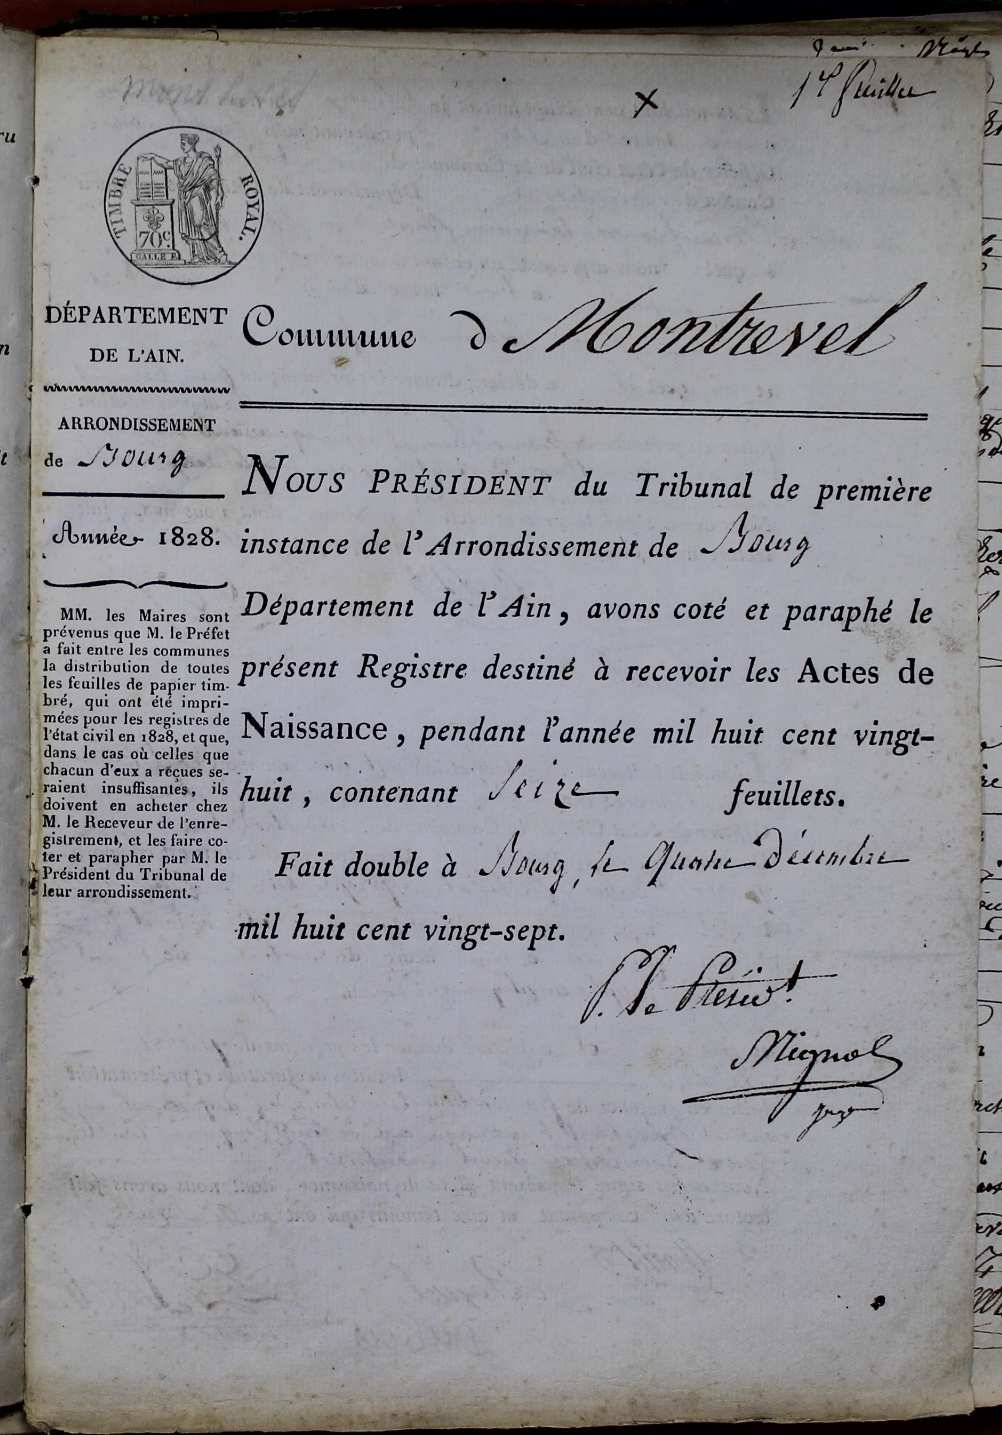 1er feuillet
TIMBRE ROYAL.
70c.
SALLE E
DÉPARTEMENT
DE L'AIN.
Commune d Montrevel
ARRONDISSEMENT
de Bourg
Année 1828.
MM. les Maires sont
prévenus que M. le Préfet
a fait entre les communes
la distribution de toutes
les feuilles de papier tim-
bré, qui ont été impri-
mées pour les registres de
l'état civil en 1828, et que,
dans le cas où celles que
chacun d'eux a reçues se-
raient insuffisantes, ils
doivent en acheter chez
M. le Receveur de l'enre-
gistrement, et les faire co-
ter et parapher par M. le
Président du Tribunal de
leur arrondissement.
NOUS PRÉSIDENT du Tribunal de première
instance de l'Arrondissement de Bourg
Département de l'Ain, avons coté et paraphé le
présent Registre destiné à recevoir les Actes de
Naissance, pendant l'année mil huit cent vingt-
huit, contenant Seize feuillets.
Fait double à Bourg, le Quatre Décembre
mil huit cent vingt-sept.
P. le Présidt.
Mignol
juge